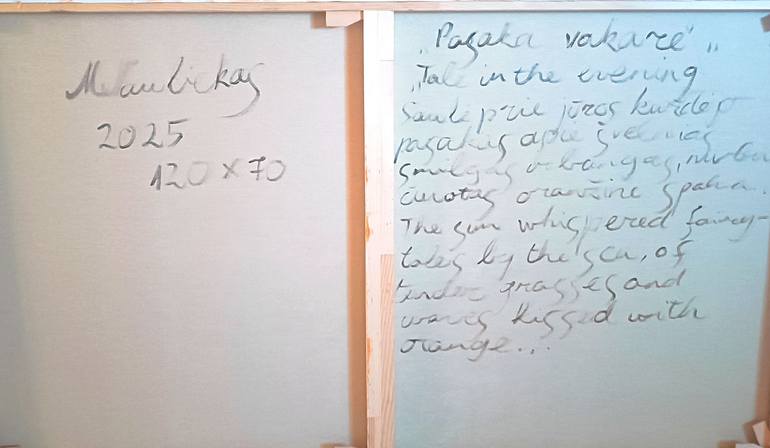 M Laulickas
2025
120 x 70
„Pasaka vakare"„
„Tale in the evening
Saulė prie jūros kuždėjo
pasakas apie švelnias
smilgas ir bangas,
oranžine spalva.
The sun whispered fairy-
tales by the sea, of
tender grasses and
waves kissed with
orange...